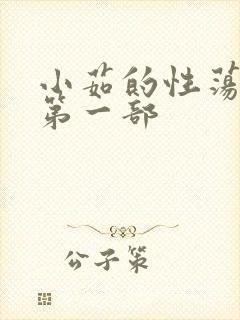 小茹的性荡
第一部
公子策